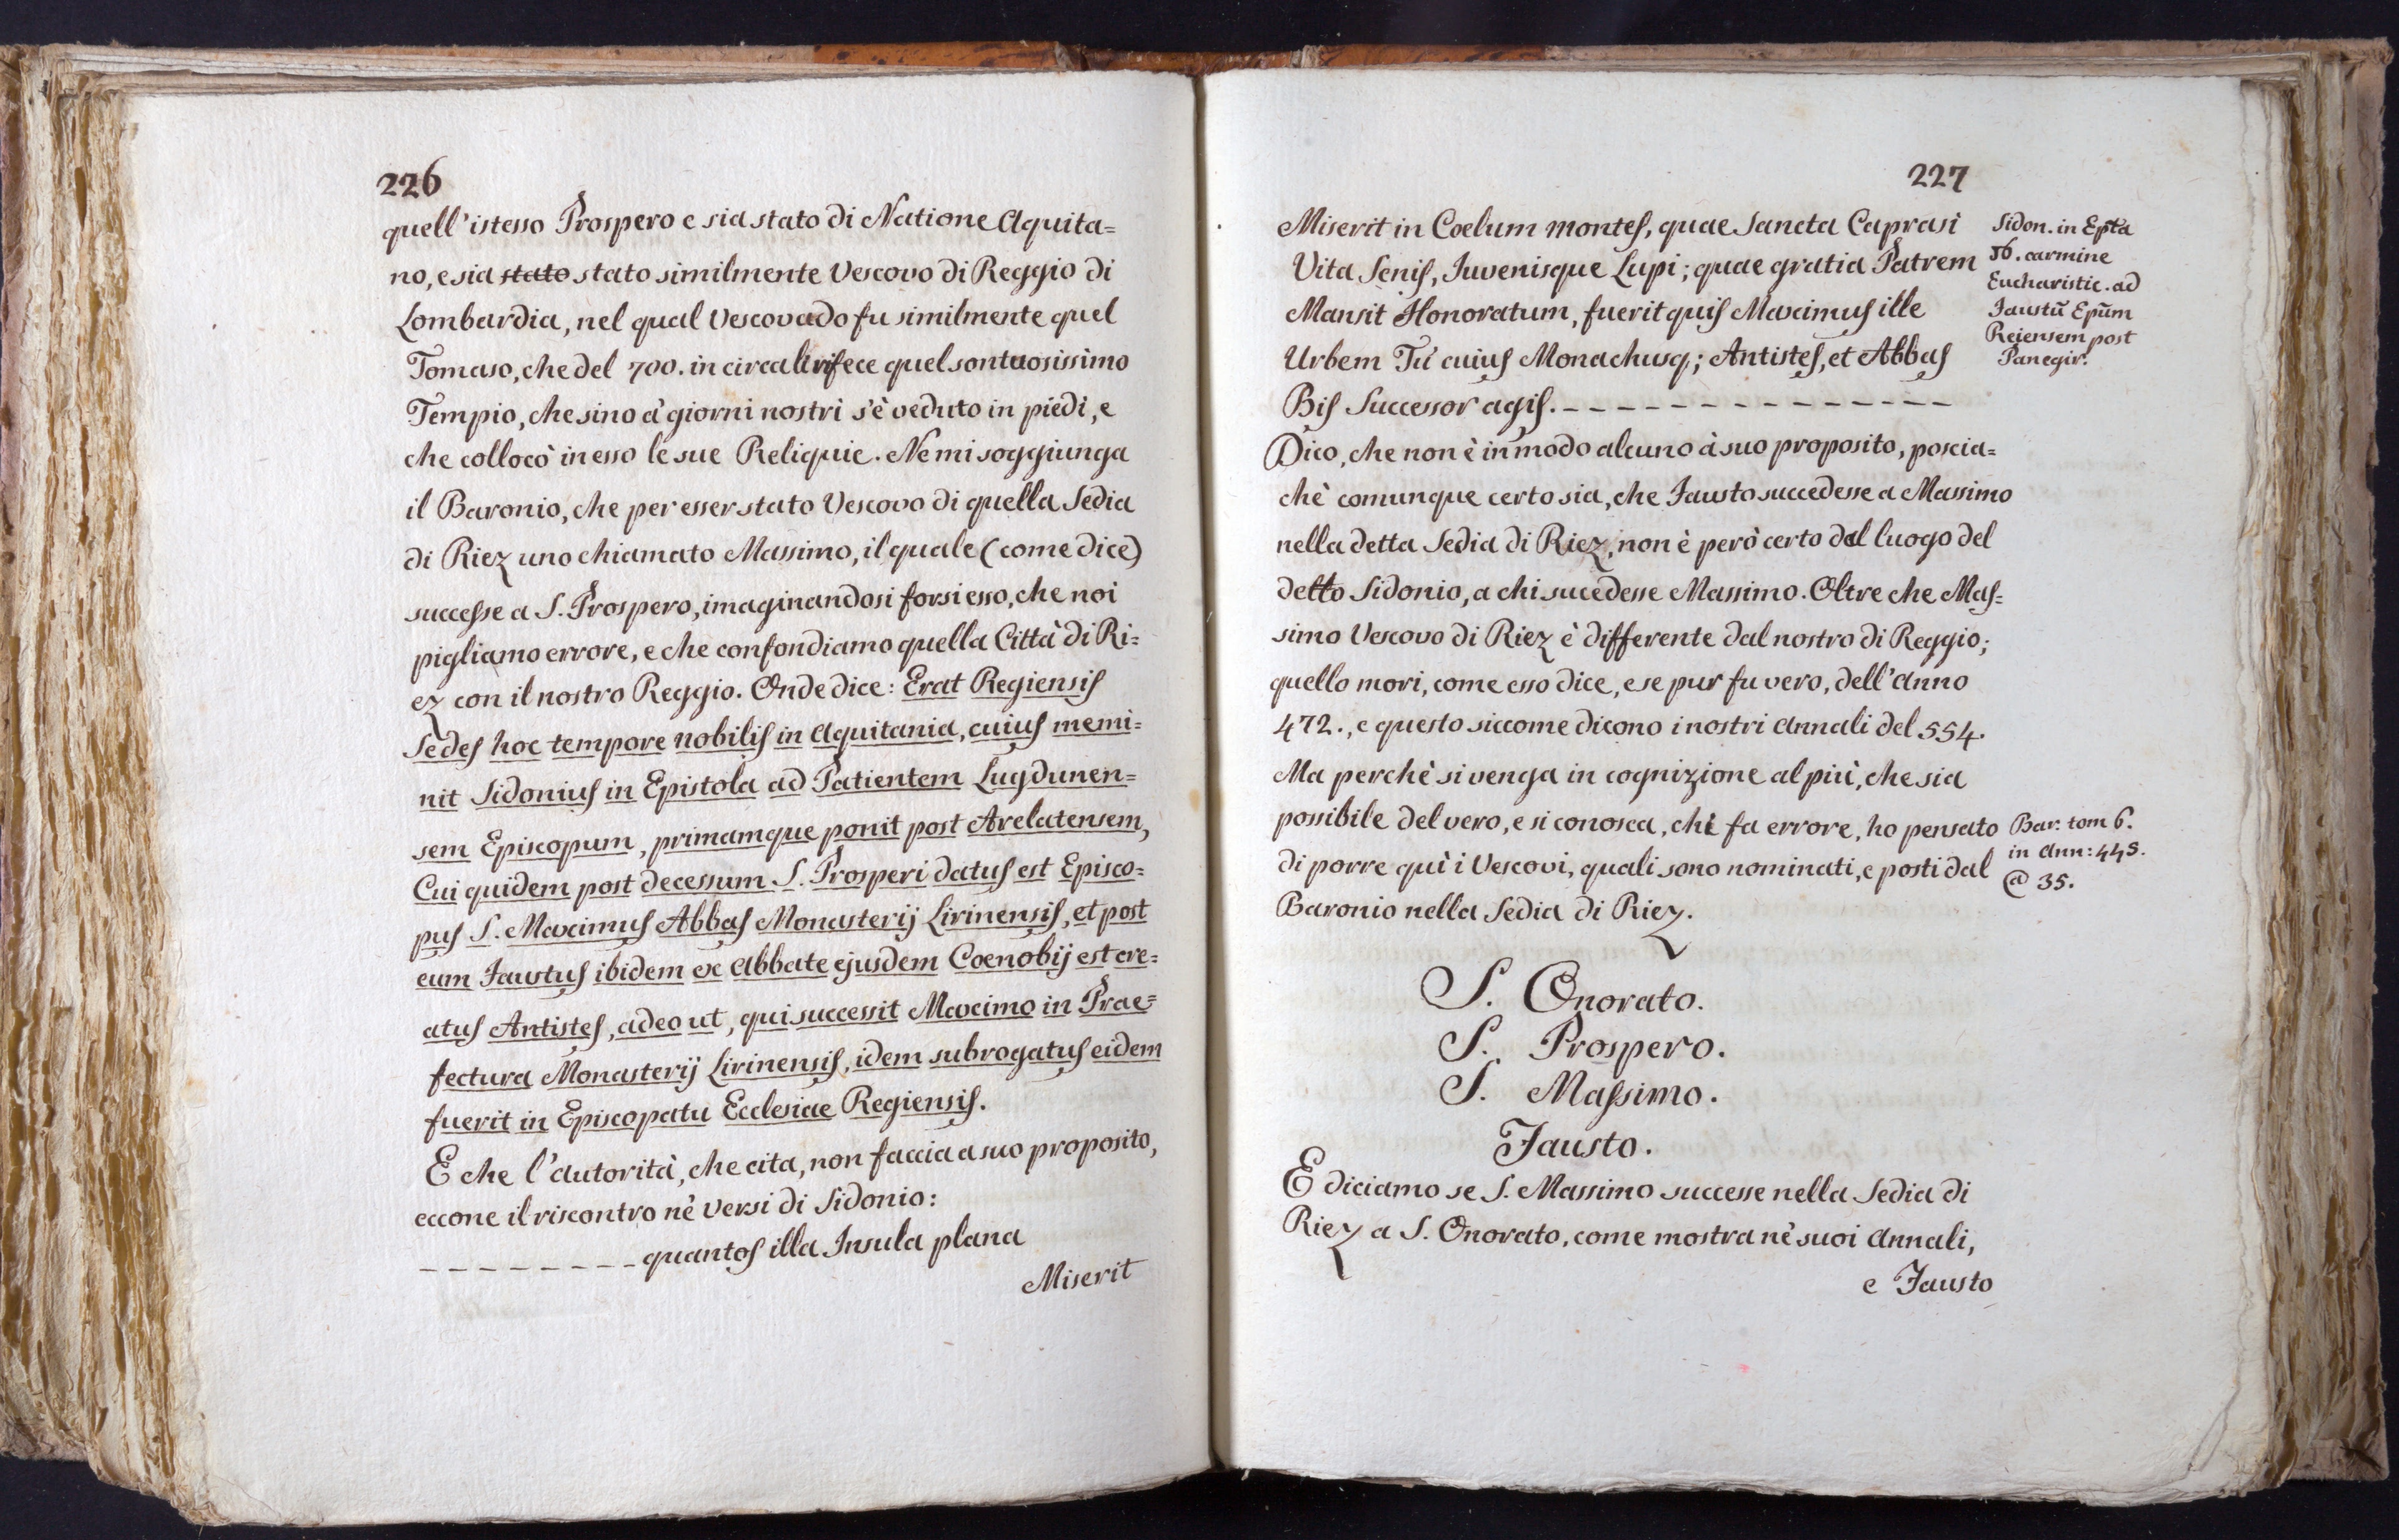 226
quell'istesso Prospero e sia stato di Natione Aquita=
no, e sia stato stato similmente Vescovo di Reggio di
Lombardia, nel qual Vescovado fu similmente quel
Tomaso, che del 700. in circa li rifece quel sontuosissimo
Tempio, che sino a' giorni nostri s'è veduto in piedi, e
che collocò in esso le sue Reliquie. Ne mi soggiunga
il Baronio, che per esser stato Vescovo di quella Sedia
di Riez uno chiamato Massimo, il quale (come dice)
successe a S. Prospero, imaginandosi forsi esso, che noi
pigliamo errore, e che confondiamo quella Città di Ri=
ez con il nostro Reggio. Onde dice: Erat Regiensis
Sedes hoc tempore nobilis in Aquitania, cuius memi=
nit Sidonius in Epistola ad Patientem Lugdunen=
sem Episcopum, primamque ponit post Arelatensem,
Cui quidem post decessum S. Prosperi datus est Episco=
pus S. Maximus Abbas Monasterij Lirinensis, et post
eum Faustus ibidem ex Abbate ejusdem Coenobij est cre=
atus Antistes, adeo ut, qui successit Maximo in Prae=
fectura Monasterij Lirinensis, idem subrogatus eidem
fuerit in Episcopatu Ecclesiae Regiensis.
E che l'autorità, che cita, non faccia a suo proposito,
eccone il riscontro nè versi di Sidonio:
_ _ _ _ _ _ _ _ quantos illa Insula plana
Miserit
227
Miserit in Coelum montes, quae Sancta Caprasi
Vita Senis, Iuvenisque Lupi; quae gratia Patrem
Mansit Honoratum, fuerit quis Maximus ille
Urbem Tù cuius Monachusq; Antistes, et Abbas
Bis Successor agis. _ _ _ _ _ _ _ _ _ _ _ _ _ _ _
Sidon. in Epta
16. carmine
Eucharistic. ad
Faustū Epūm
Reiensem post
Panegir.
Dico, che non è in modo alcuno à suo proposito, poscia=
chè comunque certo sia, che Fausto succedesse a Massimo
nella detta Sedia di Riez, non è però certo dal luogo del
detto Sidonio, a chi sucedesse Massimo. Oltre che Mas=
simo Vescovo di Riez è differente dal nostro di Reggio;
quello mori, come esso dice, e se pur fu vero, dell'Anno
472., e questo siccome dicono i nostri Annali del 554.
Ma perchè si venga in cognizione al più, che sia
possibile del vero, e si conosca, chi fa errore, ho pensato
di porre quì i Vescovi, quali sono nominati, e posti dal
Baronio nella Sedia di Riez.
Bar. tom 6.
in Ann: 445.
@ 35.
S. Onorato.
S. Prospero.
S. Massimo.
Fausto.
E diciamo se S. Massimo successe nella Sedia di
Riez a S. Onorato, come mostra nè suoi Annali,
e Fausto